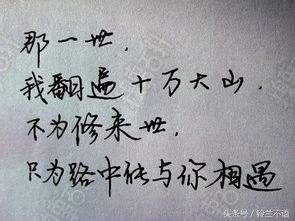 那一世，
我翻遍十万大山，
不为修来世，
只为路中能与你相遇
头条号/铃兰不语